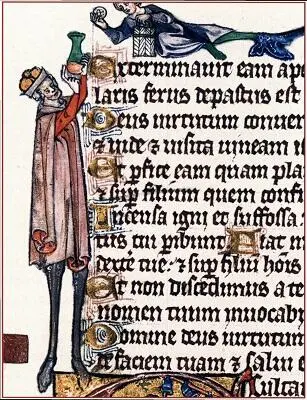 Exterminauit eam ap
laris ferus depastus est
Deus uirtutum conuer
& uide & uisita uineam is
Et perfice eam quam pla
& sup filium quem confi
Incensa igni et suffossa
tus tui peribunt Fiat m
dextere tue & sup filiū hōis
Et non discedimus a te
nomen tuum inuocabi
Domine deus uirtutum
de faciem tuam & salui
Exulta